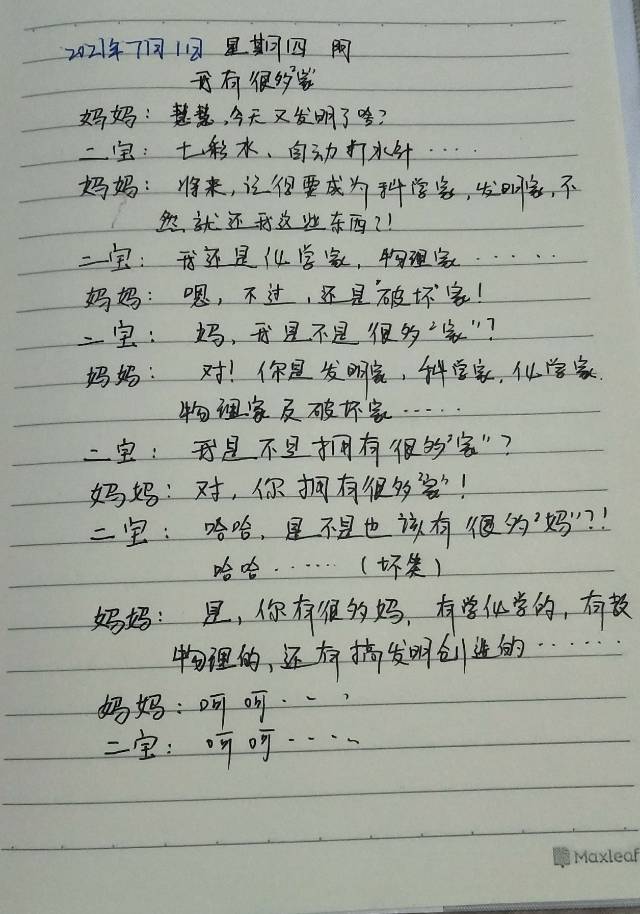 2021年7月1日 星期四 阴
我有很多"家"
妈妈：慧慧，今天又发明了啥？
二宝：七彩水、自动打水针……
妈妈：将来，记得要成为科学家，发明家，不
然，就还我这些东西？！
二宝：我还是化学家，物理家……
妈妈：嗯，不过，还是"破坏"家！
二宝：妈，我是不是很多"家"？
妈妈：对！你是发明家，科学家，化学家，
物理家及破坏家……
二宝：我是不是拥有很多"家"？
妈妈：对，你拥有很多"家"！
二宝：哈哈，是不是也该有很多"妈"？！
哈哈……（坏笑）
妈妈：是，你有很多妈，有学化学的，有教
物理的，还有搞发明创造的……
妈妈：呵呵……
二宝：呵呵……
Maxleaf